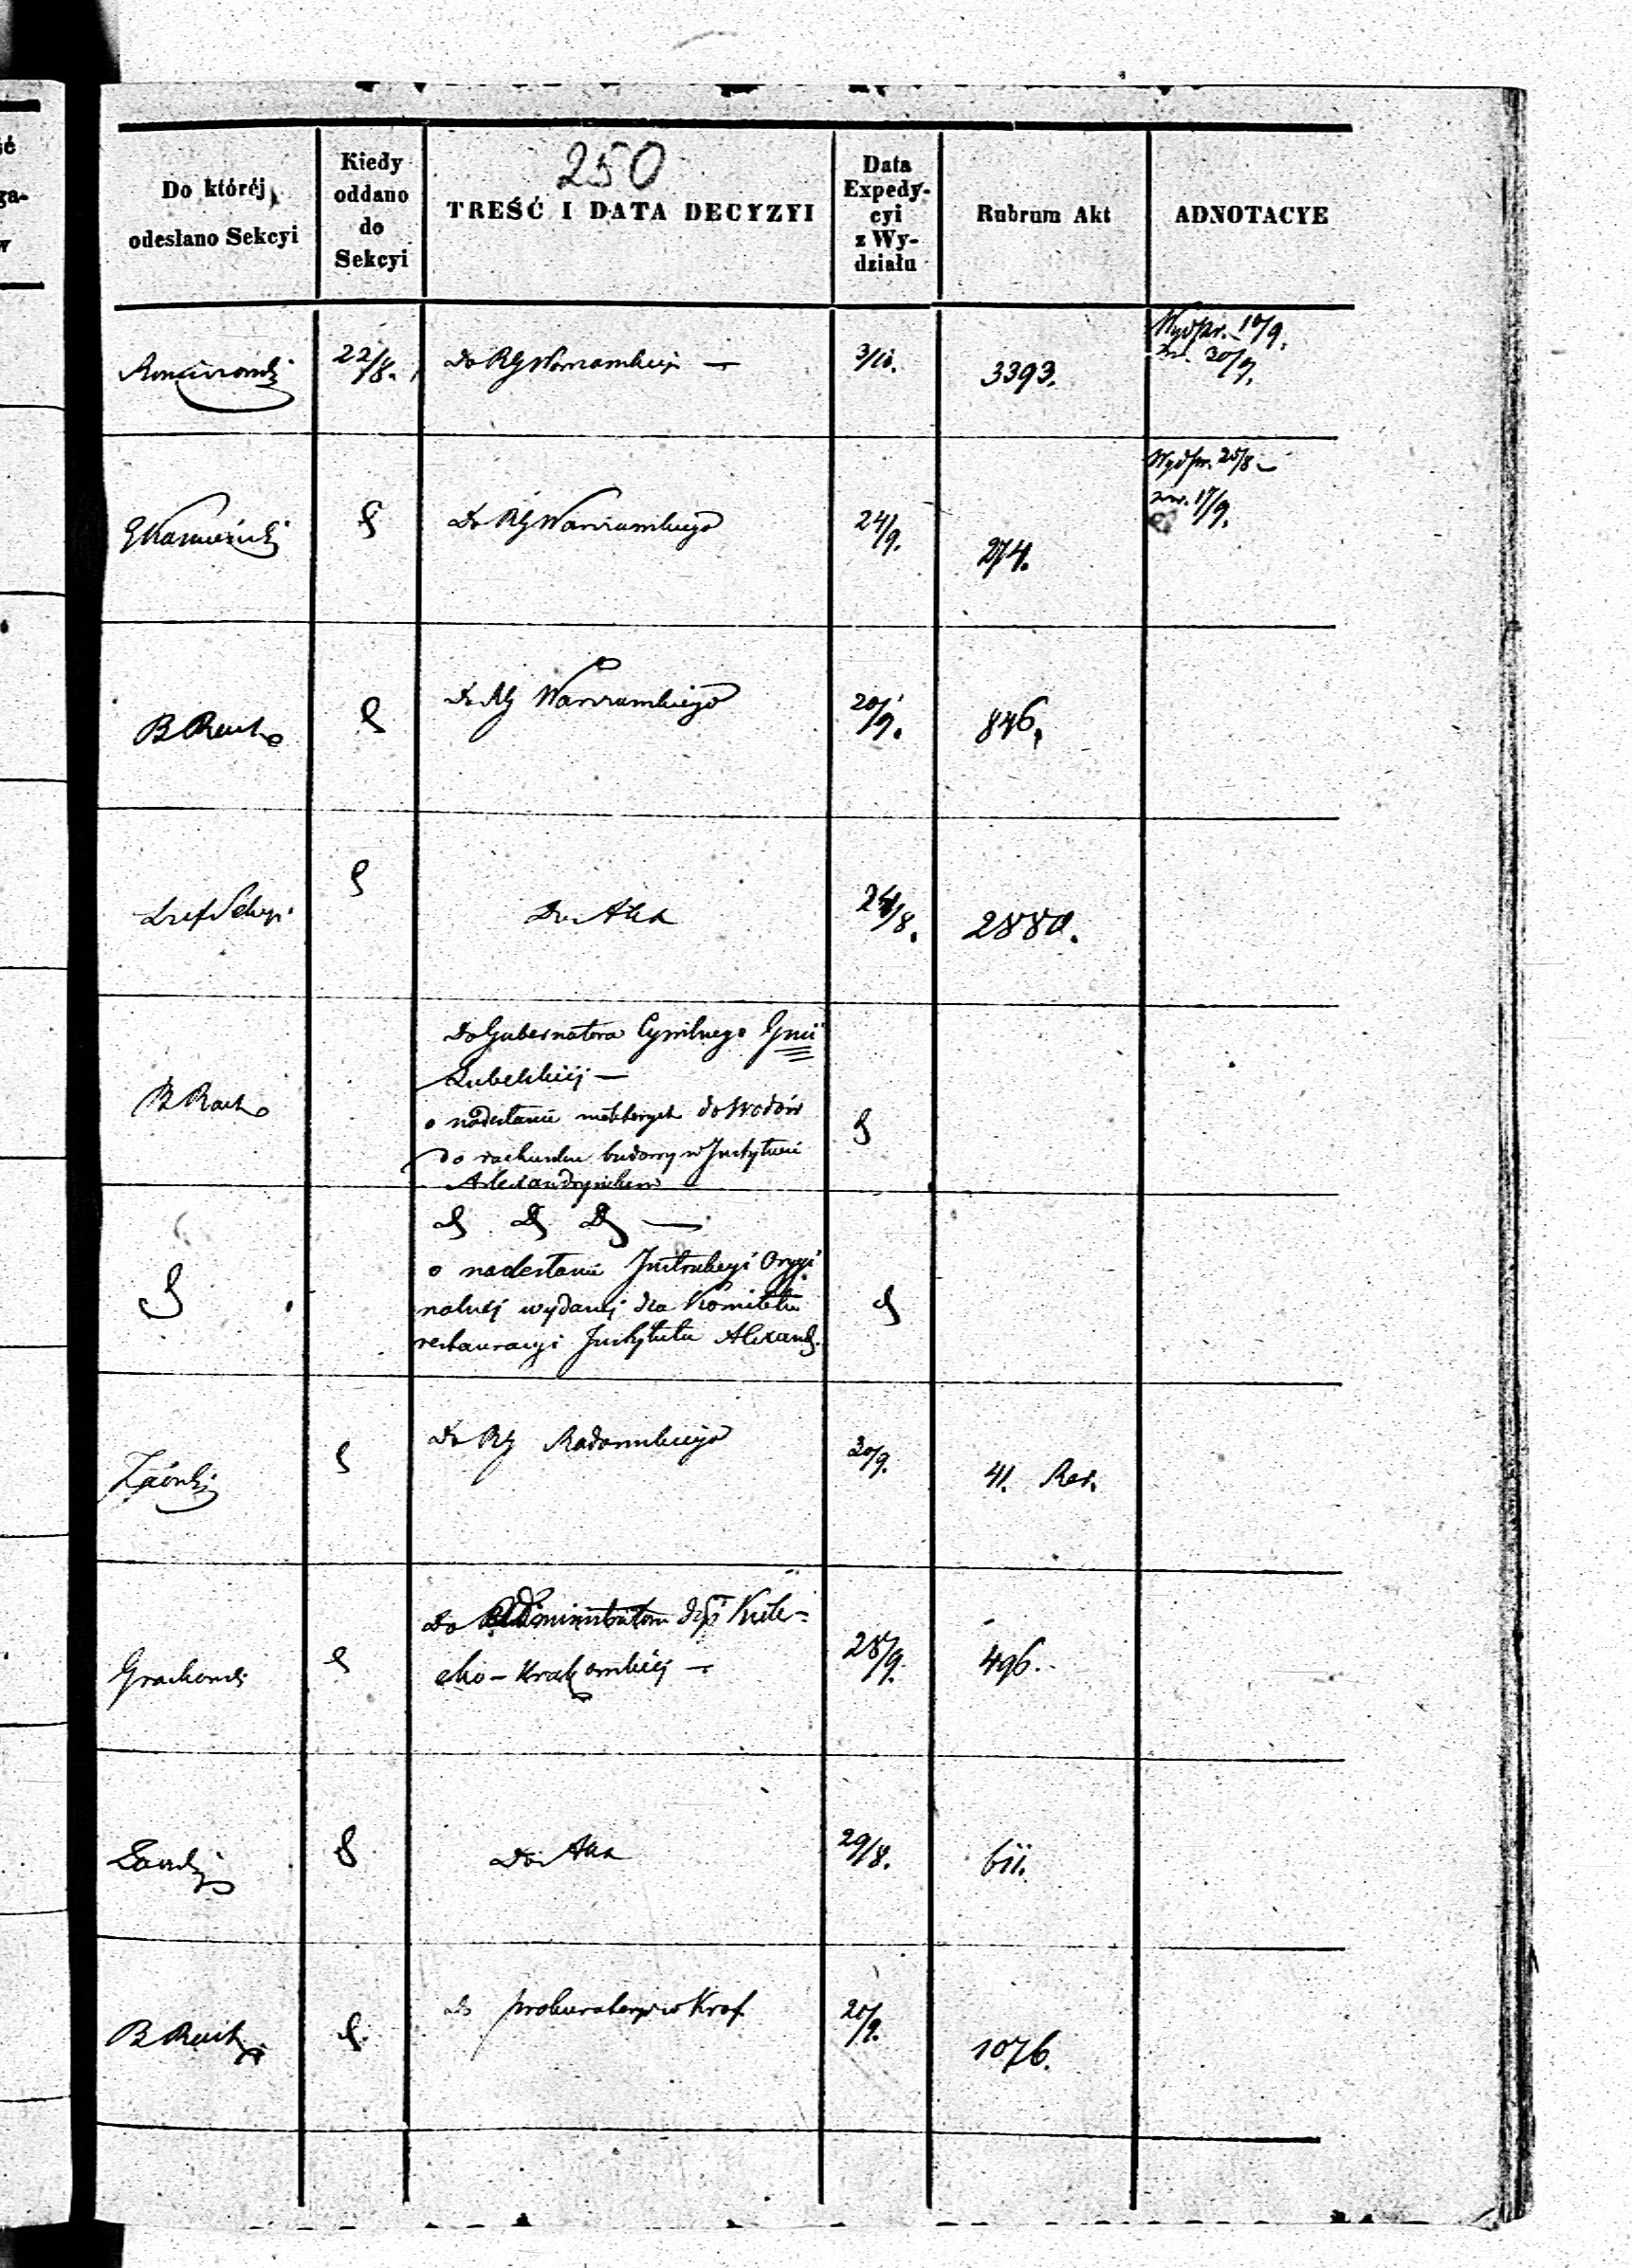 250
Do któréj
odesłano Sekcyi
Kiedy
oddano
do
Sekcyi
TREŚĆ I DATA DECYZYI
Data
Expedy-
cyi
z Wy-
działu
Rubrum Akt
ADNOTACYE
22/8.
Do RG Warszawskiej —
3/10.
3393.
Wydpr. 10/9.
zw. 30/9.
Do RG Warszawskiego
24/9.
274.
Wydpr. 25/8 —
zw. 17/9.
B Rach
Do RG Warszawskiego
20/9.
846.
Szef Sekcyi
Do Akt
24/8.
2880.
B Rach
Do Gubernatora Cywilnego Gnii
Lubelskiej —
o nadesłanie niektórych dowodów
do rachunku budowy w Instytucie
Alexandryjskim
o nadesłanie Instrukcyi Orygi
nalnej wydanej dla Komitetu
restauracyi Instytutu Alexand.
Do RG Radomskiego
30/9.
41. Rad.
Do Administratora Dyi Kiele-
cko-Krakowskiej —
28/9.
496.
Do Akt
29/8.
611.
B Rach
do prokuratoryi w Król.
20/9.
1076.